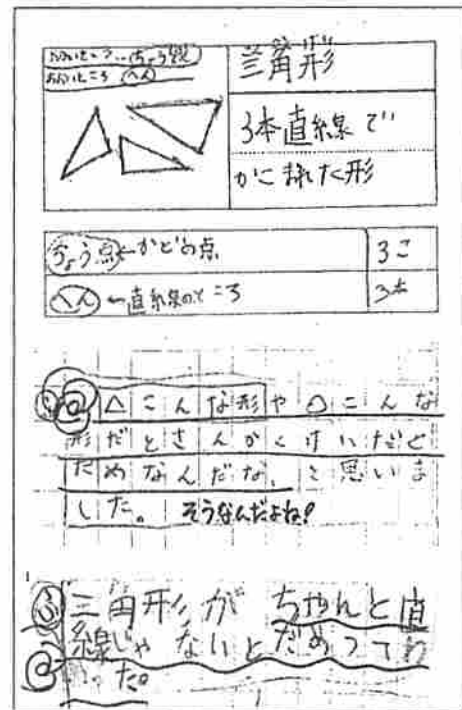 三角形
3本直線で
かこまれた形
ちょう点←かどの点 3こ
へん←直線のところ 3本
△こんな形や△こんな
形だとさんかくけいだと
だめなんだな、と思いま
した。 そうなんだよね!
三角形がちゃんと直
線じゃないとだめってわ
た。